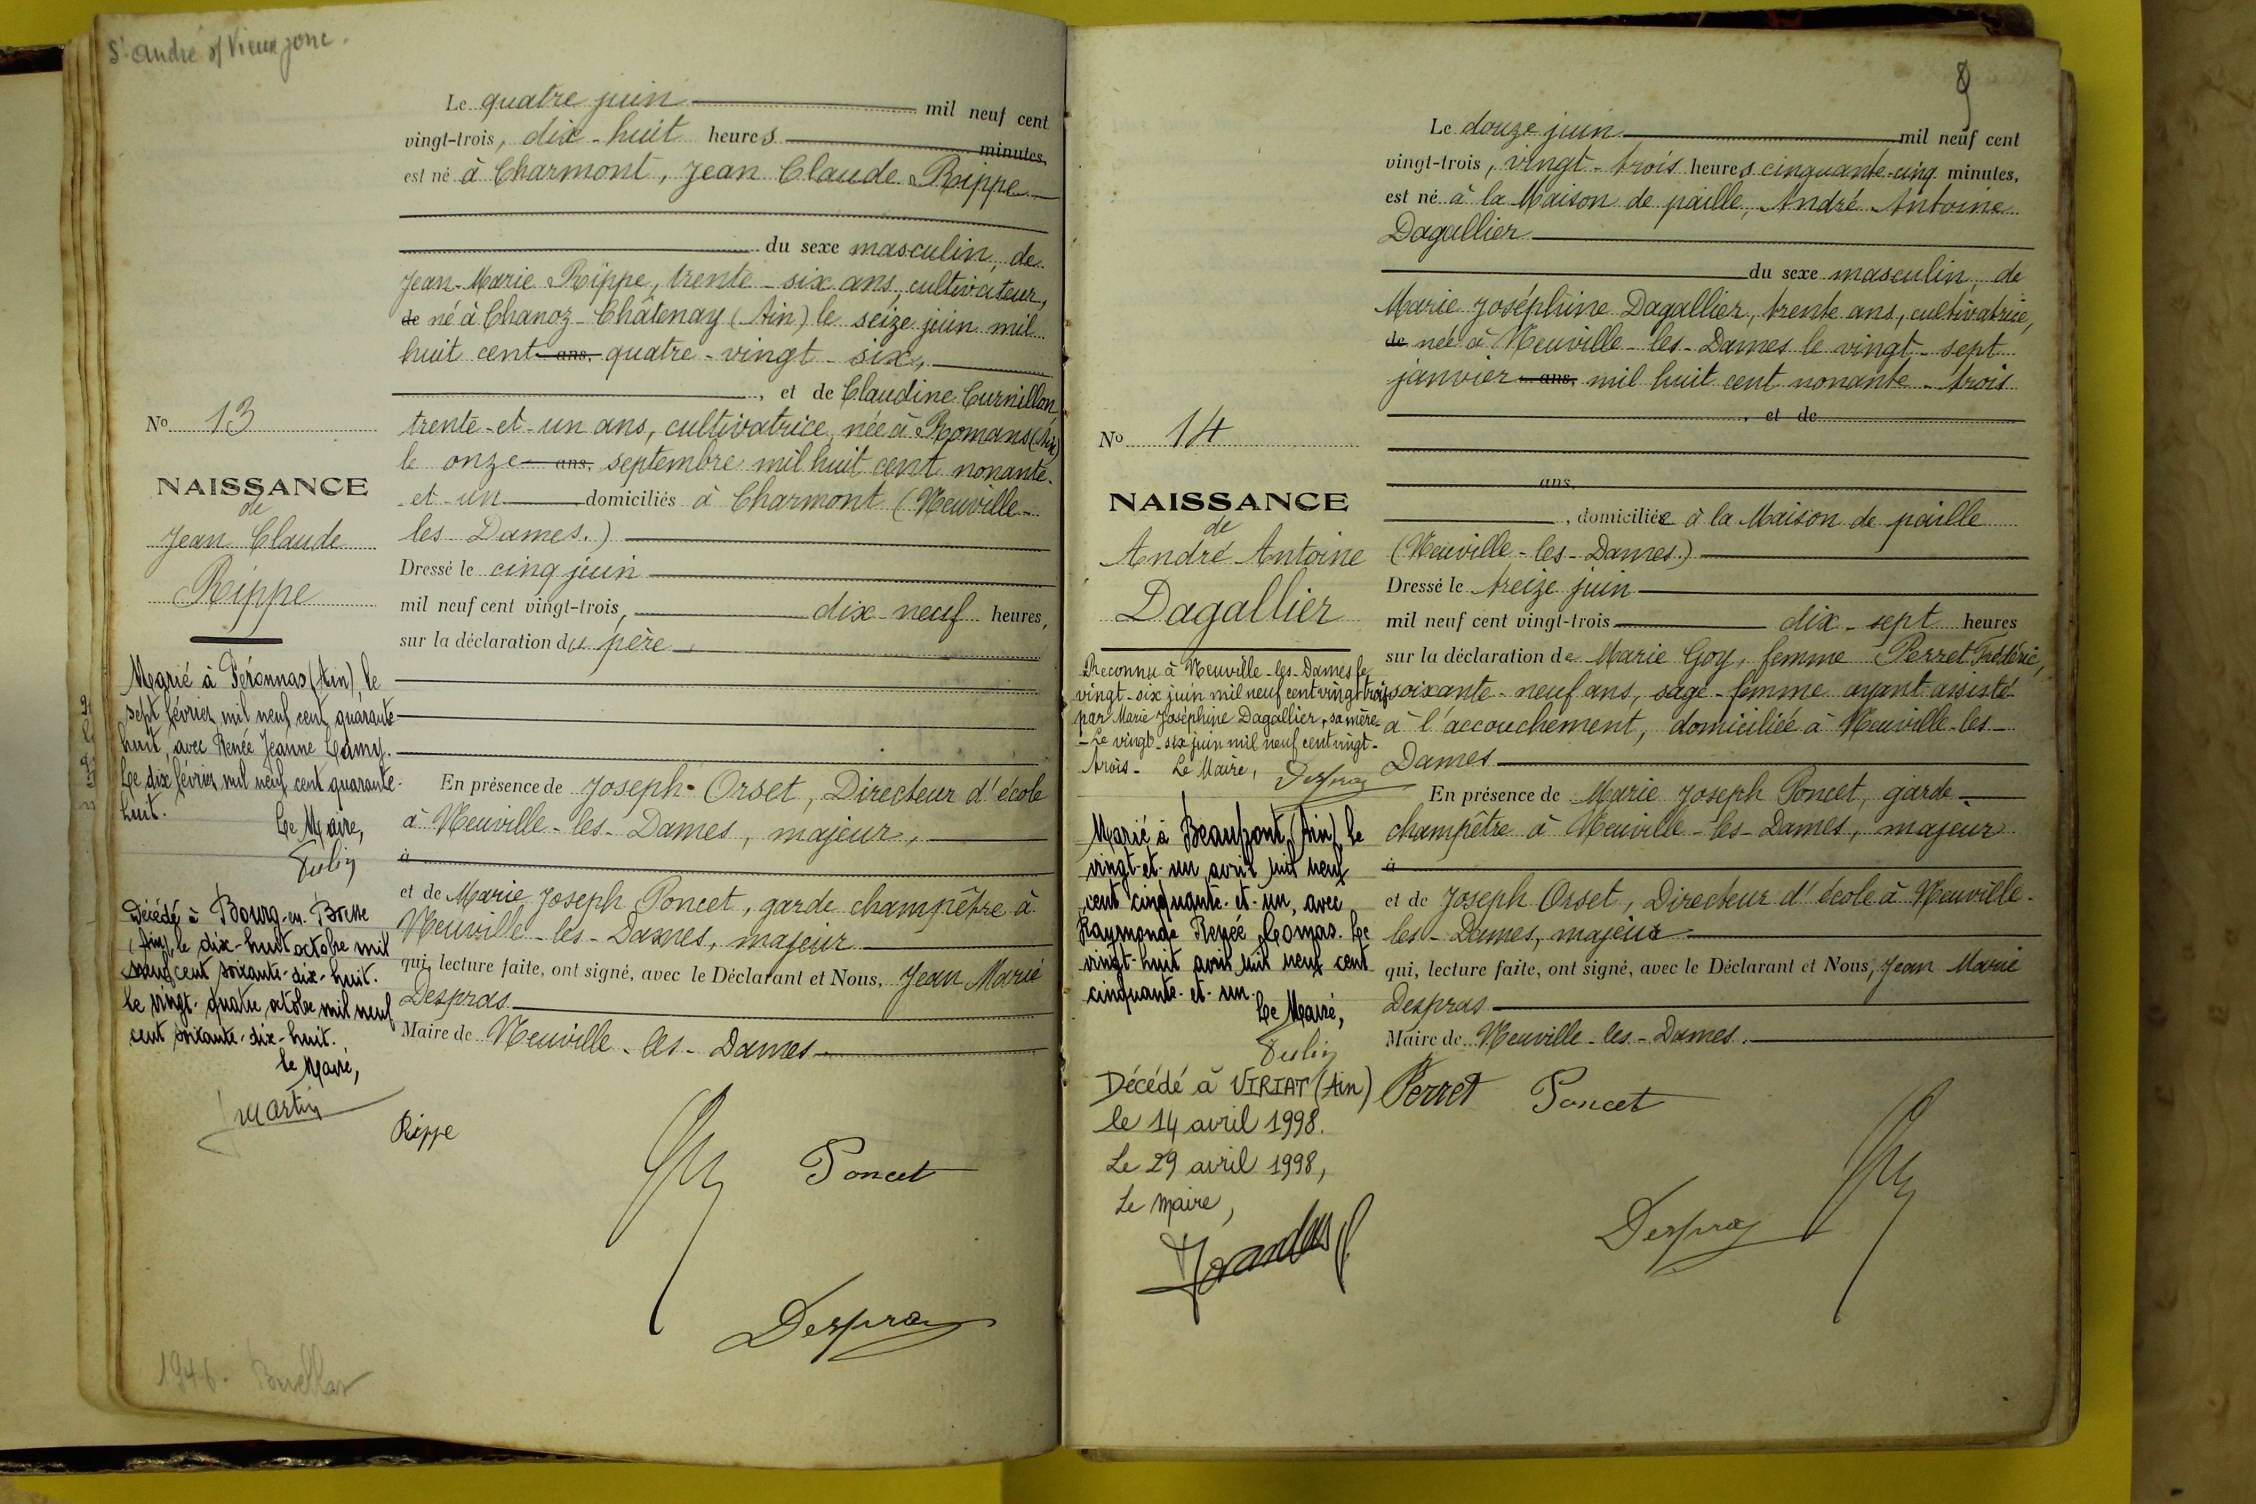 St André s/ Vieux jonc.
Le quatre juin mil neuf cent
vingt-trois, dix-huit heures minutes,
est né à Charmont, Jean Claude Rippe
du sexe masculin, de
Jean-Marie Rippe, trente-six ans, cultivateur,
de né à Chanoz-Châtenay (Ain) le seize juin mil
huit cent ans, quatre-vingt-six,
, et de Claudine Curnillon
trente-et-un ans, cultivatrice, née à Romans (Ain)
le onze ans, septembre mil huit cent nonante-
et-un domiciliés à Charmont (Neuville-
les Dames.)
Dressé le cinq juin
mil neuf cent vingt-trois, dix neuf heures,
sur la déclaration du père
En présence de Joseph Orset, Directeur d'école
à Neuville-les-Dames, majeur,
à
et de Marie Joseph Poncet, garde champêtre à
Neuville-les-Dames, majeur
qui, lecture faite, ont signé, avec le Déclarant et Nous, Jean Marie
Despras
Maire de Neuville-les-Dames
Rippe
Poncet
Despras
No 13
NAISSANCE
de
Jean Claude
Rippe
Marié à Péronnas (Ain), le
sept février mil neuf cent quarante-
huit, avec Renée Jeanne Camy.
Le dix février mil neuf cent quarante-
huit.
Le Maire,
Décédé à Bourg-en-Bresse
(Ain) le dix-huit octobre mil
neuf cent soixante-dix-huit.
Le vingt-quatre octobre mil neuf
cent soixante-dix-huit.
Le Maire,
Martin
1946.
9
Le douze juin mil neuf cent
vingt-trois, vingt-trois heures cinquante-cinq minutes,
est né à la Maison de paille, André Antoine
Dagallier
du sexe masculin, de
Marie Joséphine Dagallier, trente ans, cultivatrice,
de née à Neuville-les-Dames le vingt-sept
janvier ans, mil huit cent nonante-trois
, et de
ans,
, domiciliée à la Maison de paille
(Neuville-les-Dames.)
Dressé le treize juin
mil neuf cent vingt-trois dix-sept heures
sur la déclaration de Marie Goy, femme Perret Frédéric,
soixante-neuf ans, sage-femme ayant assisté
à l'accouchement, domiciliée à Neuville-les-
Dames
En présence de Marie Joseph Poncet, garde
champêtre à Neuville-les-Dames, majeur
à
et de Joseph Orset, Directeur d'école à Neuville-
les-Dames, majeur
qui, lecture faite, ont signé, avec le Déclarant et Nous, Jean Marie
Despras
Maire de Neuville-les-Dames.
Perret Poncet
Despras
No 14
NAISSANCE
de
André Antoine
Dagallier
Reconnu à Neuville-les-Dames le
vingt-six juin mil neuf cent vingt trois
par Marie Joséphine Dagallier, sa mère
- Le vingt-six juin mil neuf cent vingt-
trois - Le Maire, Despras
Marié à Beaupont (Ain) le
vingt-et-un avril mil neuf
cent cinquante-et-un, avec
Raymonde Renée Comas. Le
vingt-huit avril mil neuf cent
cinquante-et-un.
Le Maire,
Décédé à VIRIAT (Ain)
le 14 avril 1998.
Le 29 avril 1998,
Le maire,